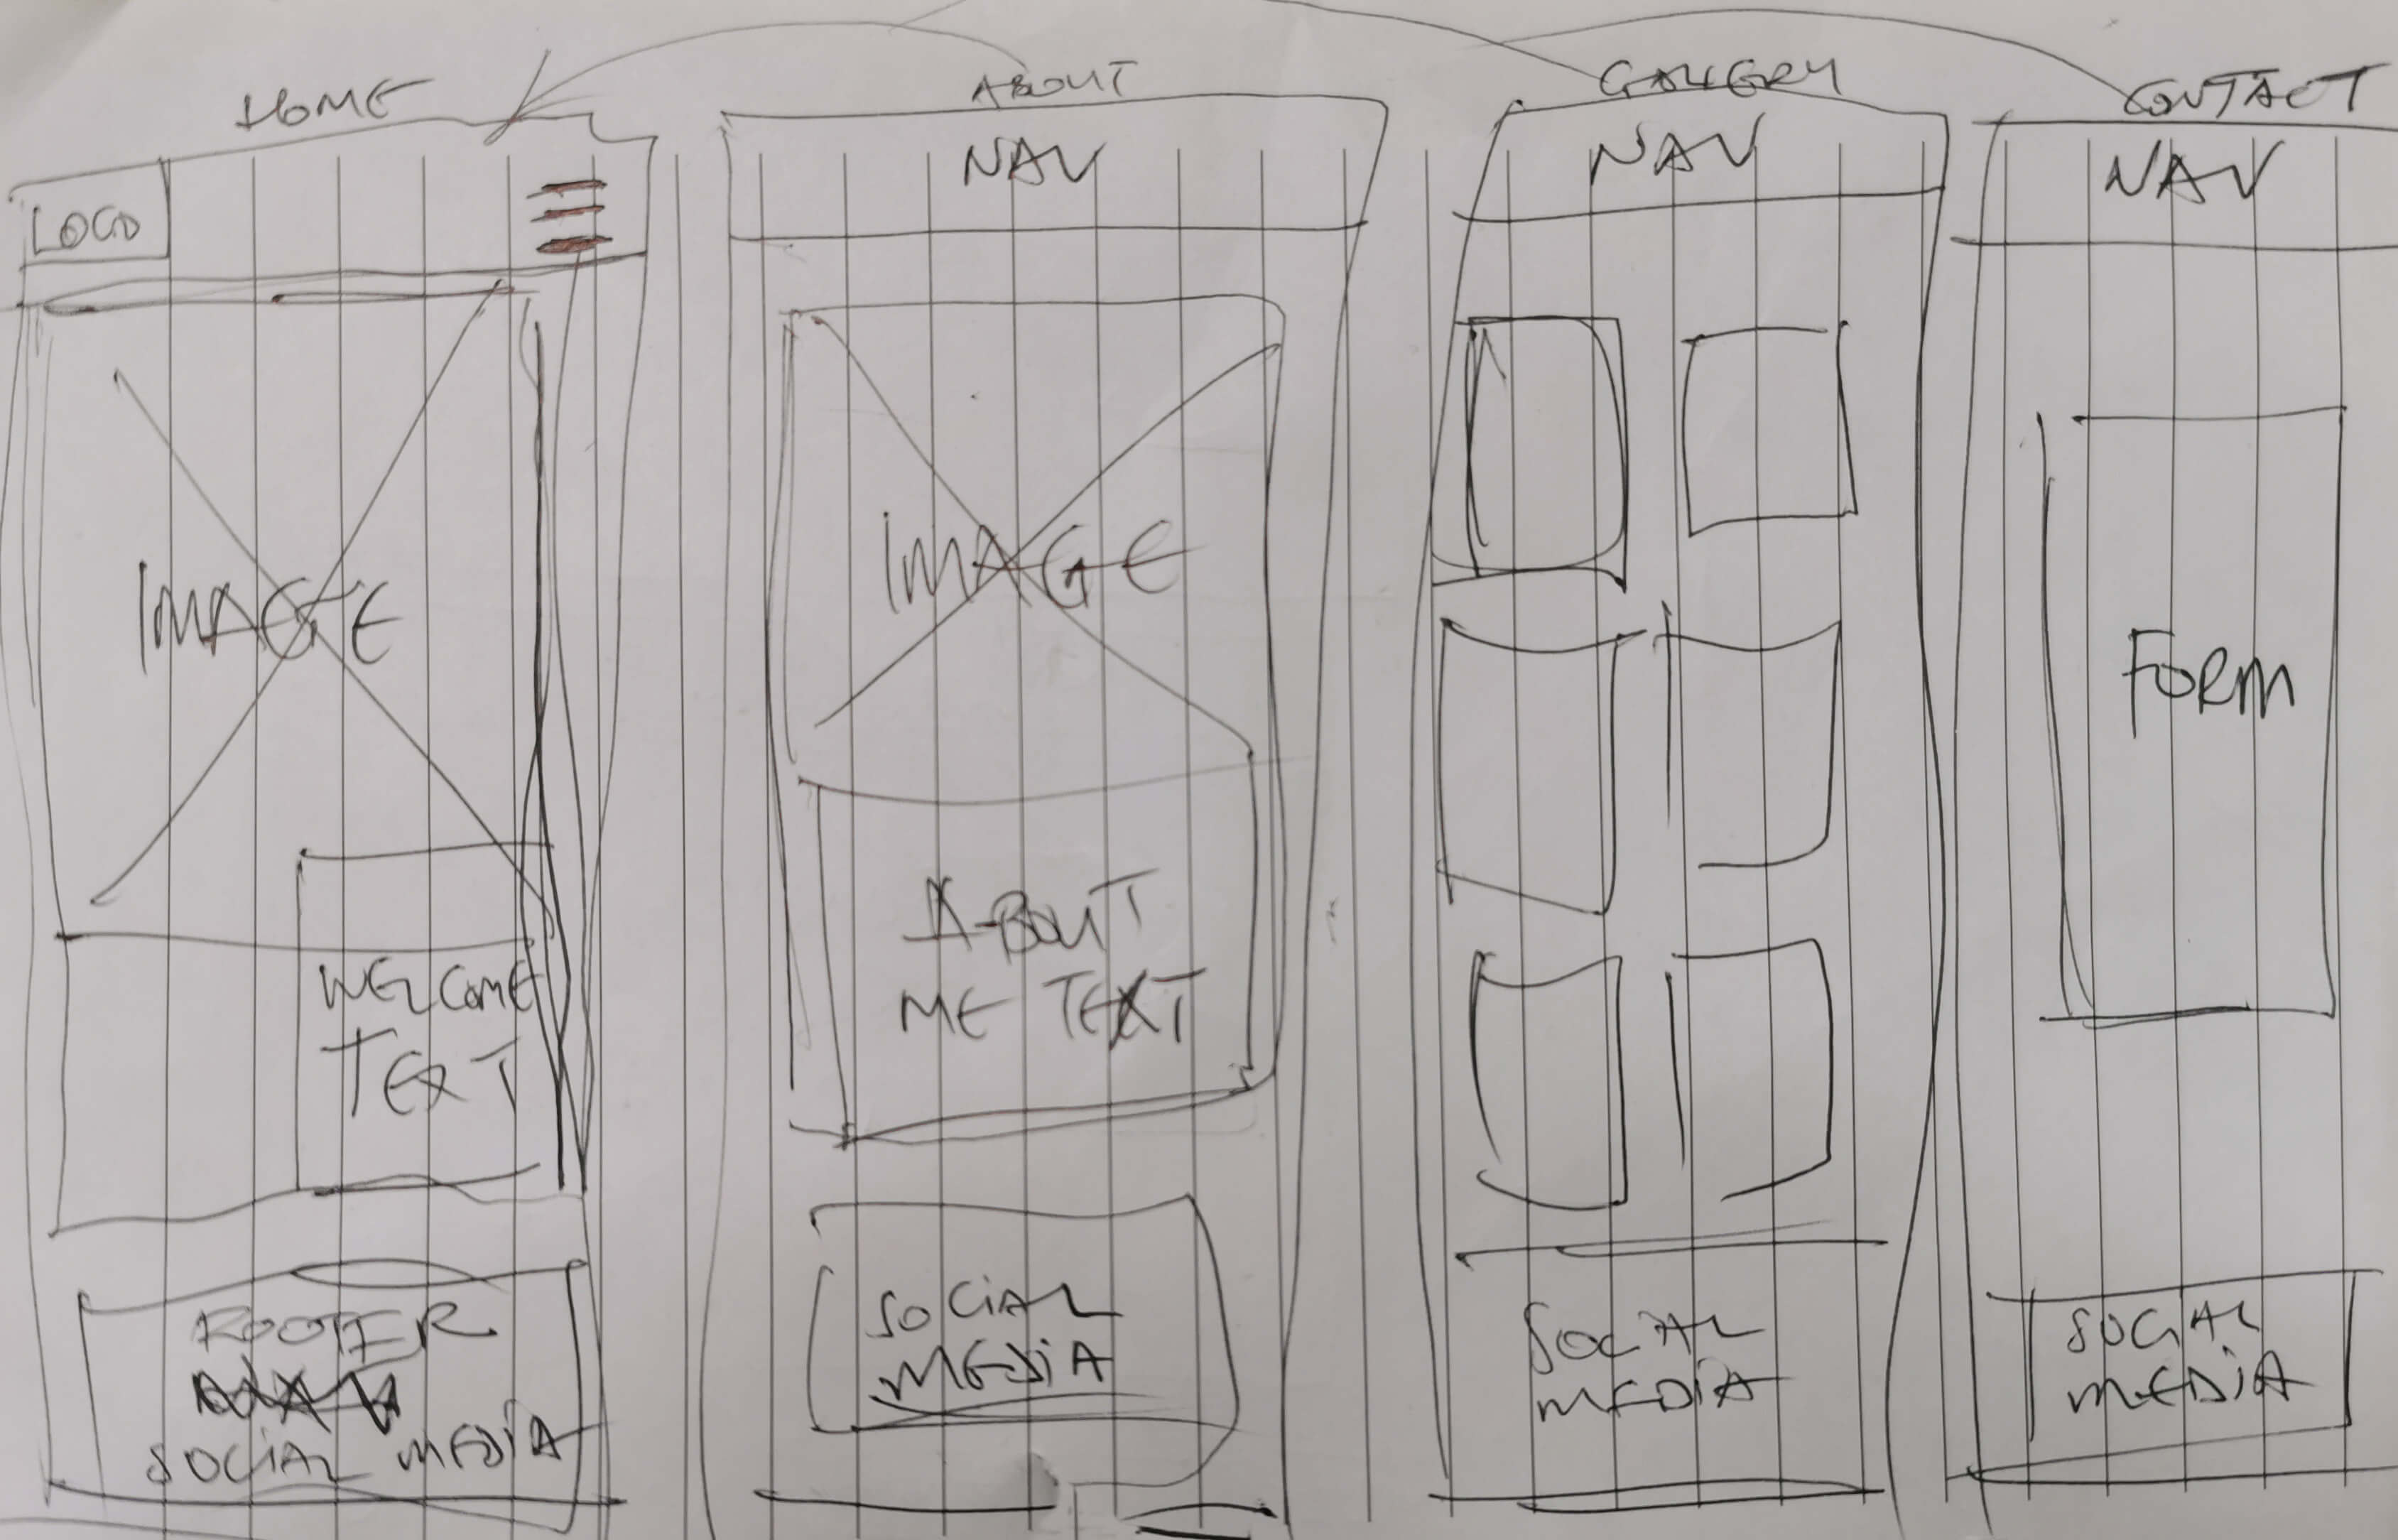 HOME
LOGO
IMAGE
WELCOME
TEXT
FOOTER
SOCIAL MEDIA
ABOUT
NAV
IMAGE
ABOUT
ME TEXT
SOCIAL
MEDIA
GALLERY
NAV
SOCIAL
MEDIA
CONTACT
NAV
FORM
SOCIAL
MEDIA